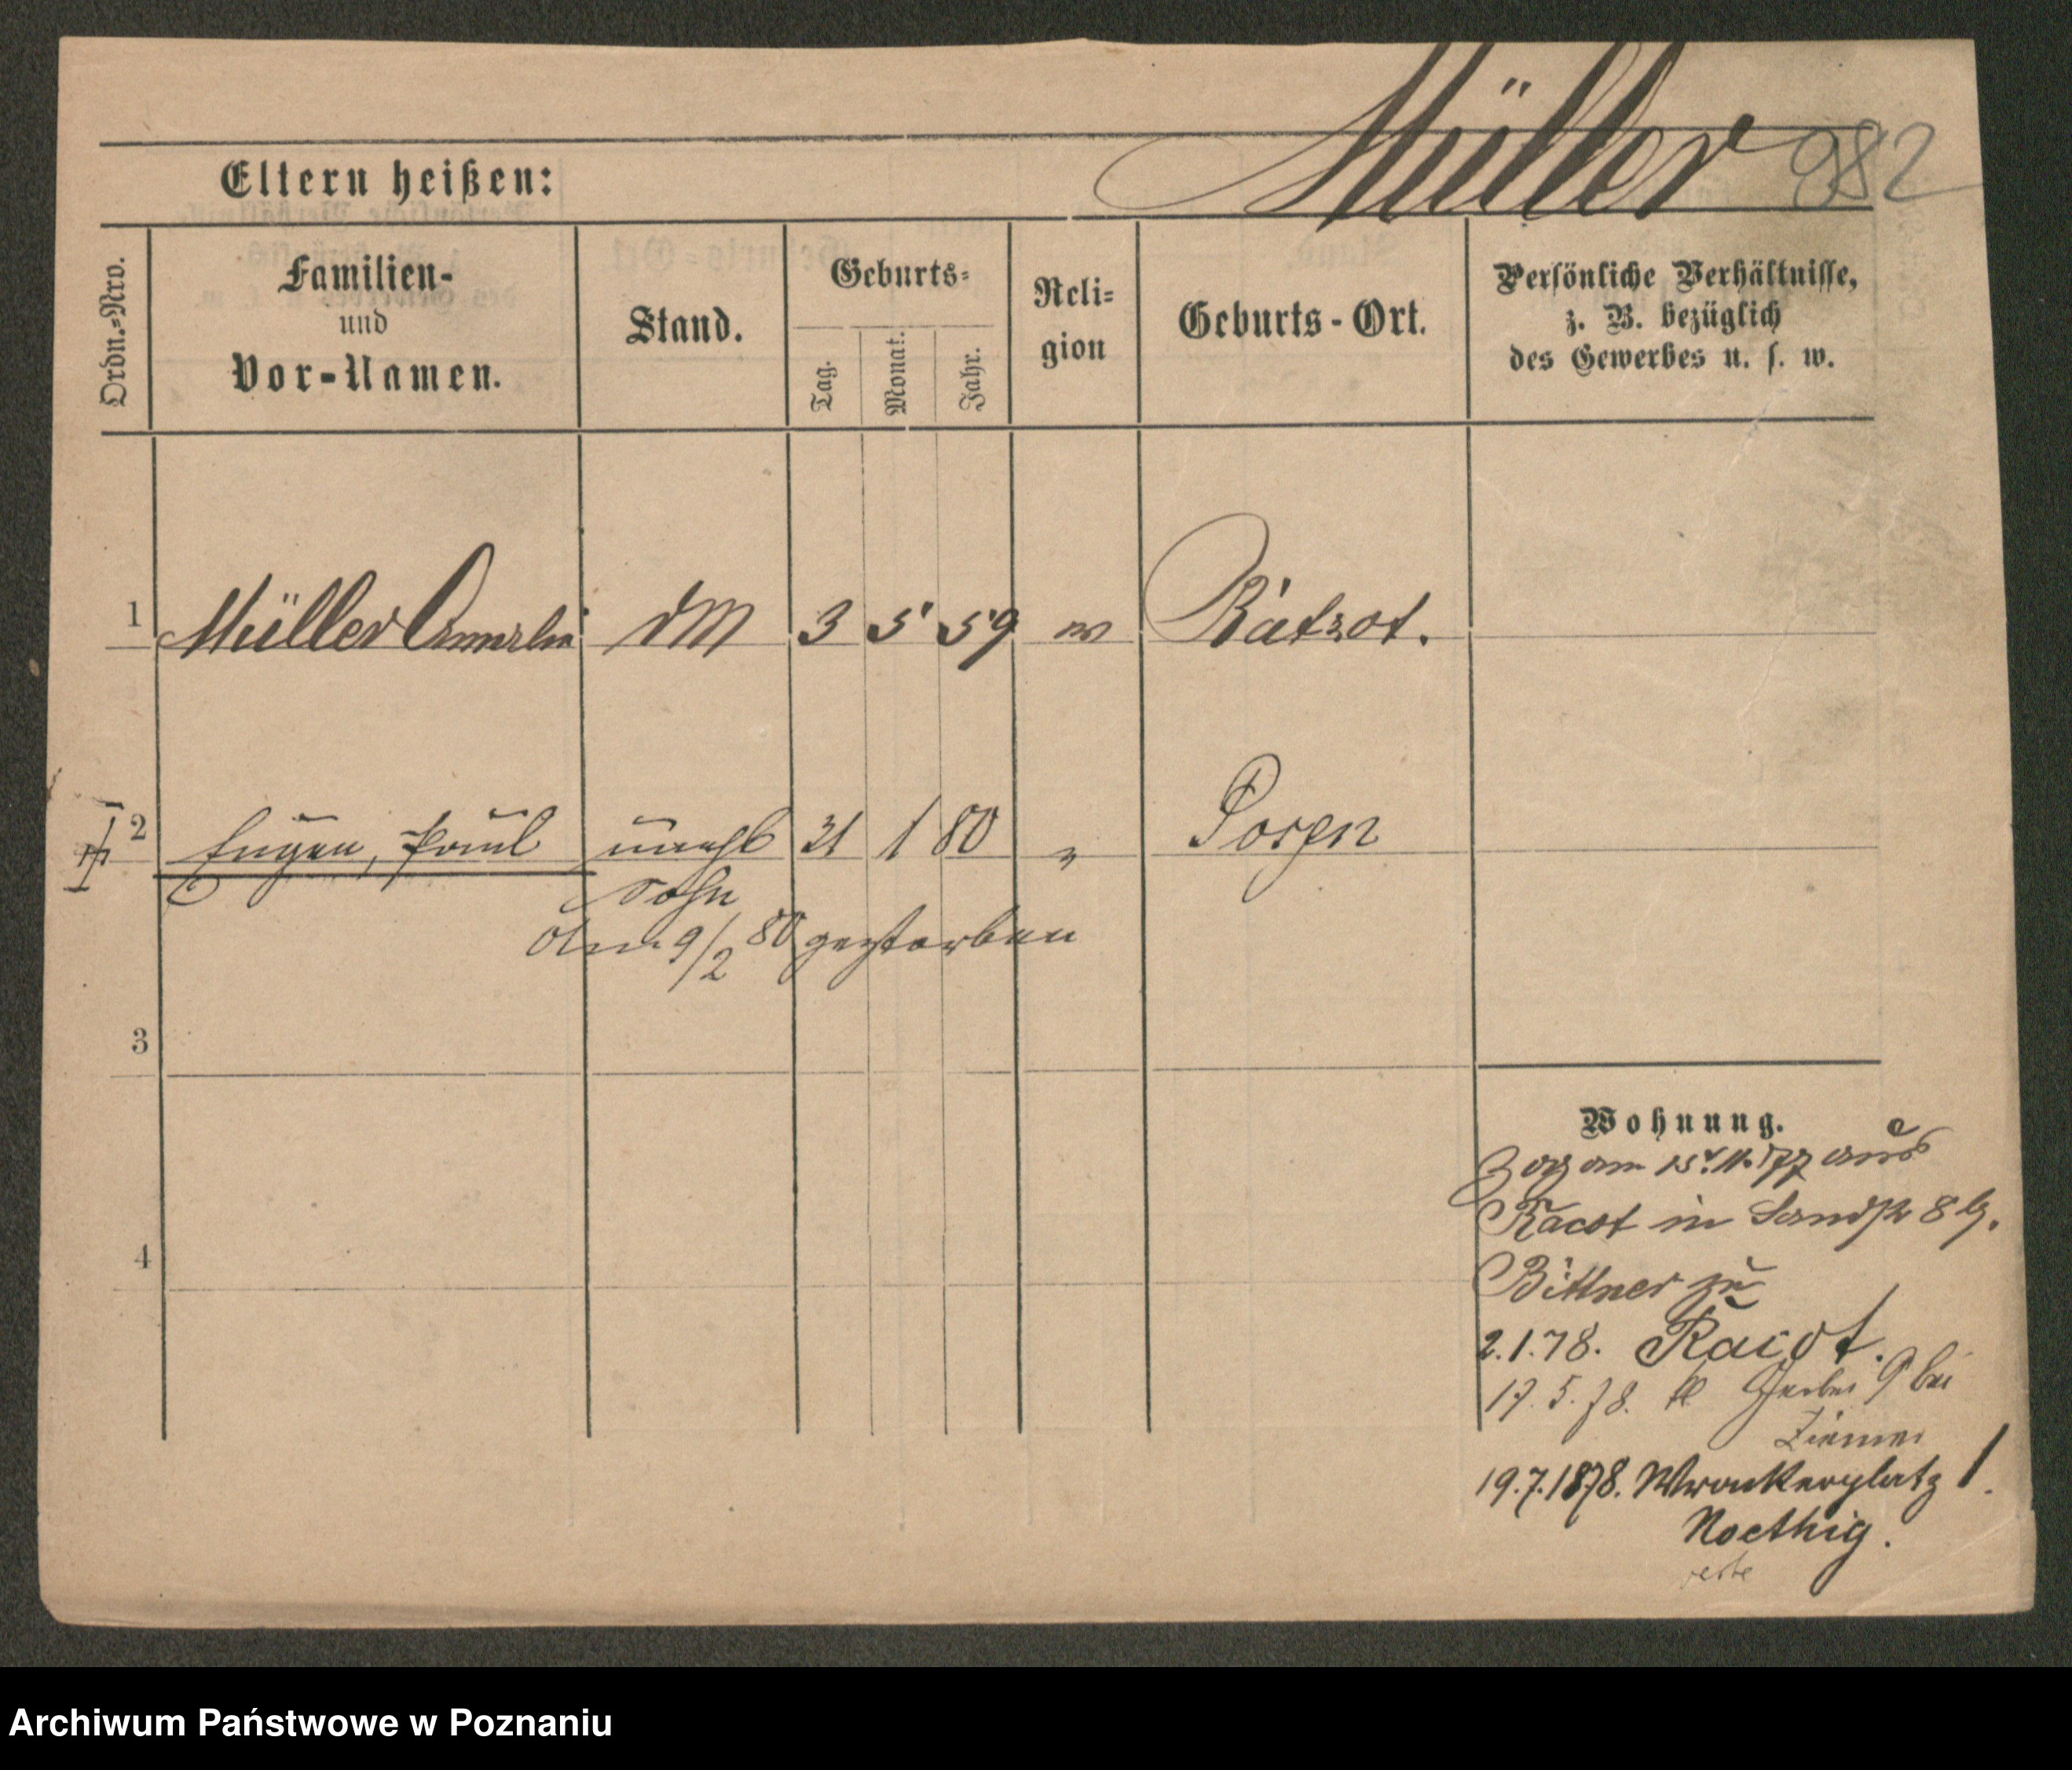 Müller 982
Eltern heißen:
Ordn.-Nro.
Familien-
und
Vor-Namen.
Stand.
Geburts-
Tag.
Monat.
Jahr.
Reli-
gion
Geburts-Ort.
Persönliche Verhältnisse,
z. B. bezüglich
des Gewerbes u. s. w.
1 Müller Amalia DM 3 5 59 Ratzot.
2 Eugen, Paul unehl 31 1 80 " Posen
Sohn
Am 9/2 80 gestorben
3
4
Wohnung.
Zog am 15. 11. 77 aus
Racot in Sandstr 8 b.
Bittner zu
2.1.78. Racot.
17. 5. 78. Gerber 9 bei
Ziemer
19.7.1878. Wronkerplatz 1.
Noethig.
Archiwum Państwowe w Poznaniu